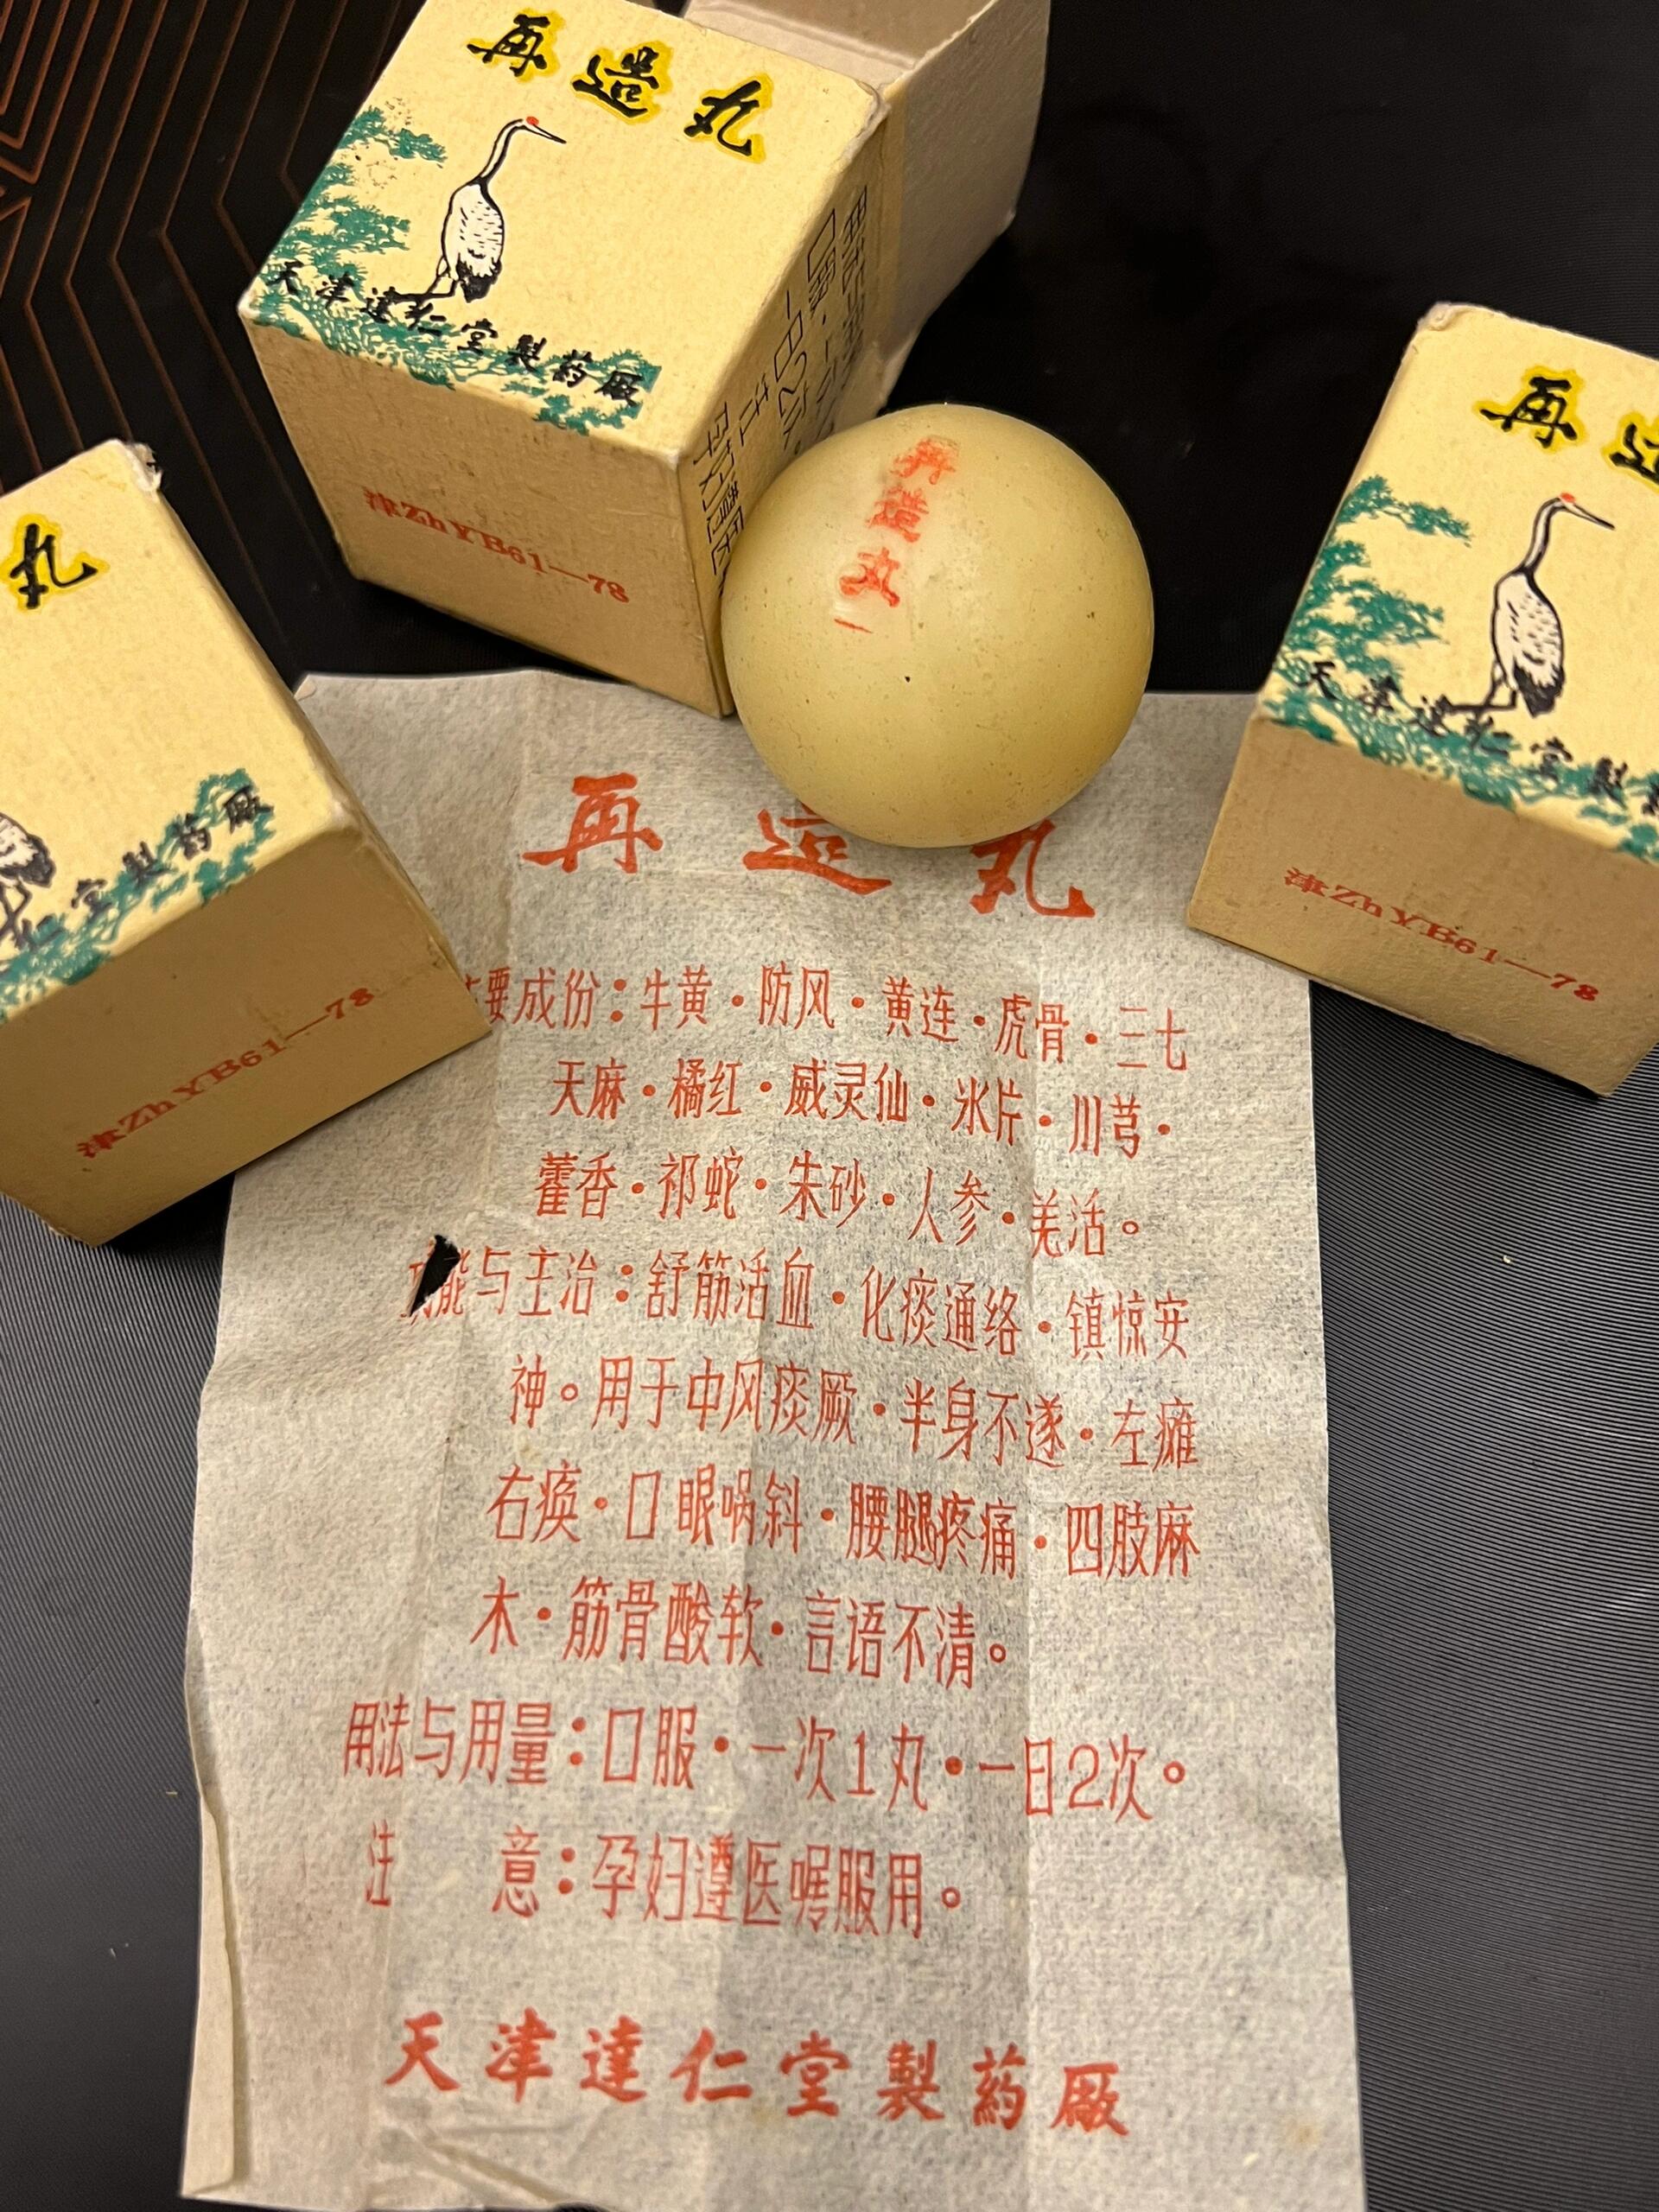 再造丸
天津達仁堂製药厰
津ZhYB61—78
再造丸
丸
堂製药厰
津ZhYB61—78
再
天津達仁堂製
津ZhYB61—78
再造丸
要成份：牛黄·防风·黄连·虎骨·三七
天麻·橘红·威灵仙·氷片·川芎·
藿香·祁蛇·朱砂·人参·羌活。
能与主治：舒筋活血·化痰通络·镇惊安
神。用于中风痰厥·半身不遂·左瘫
右痪·口眼㖞斜·腰腿疼痛·四肢麻
木·筋骨酸软·言语不清。
用法与用量：口服·一次1丸·一日2次。
注 意：孕妇遵医嘱服用。
天津達仁堂製药厰